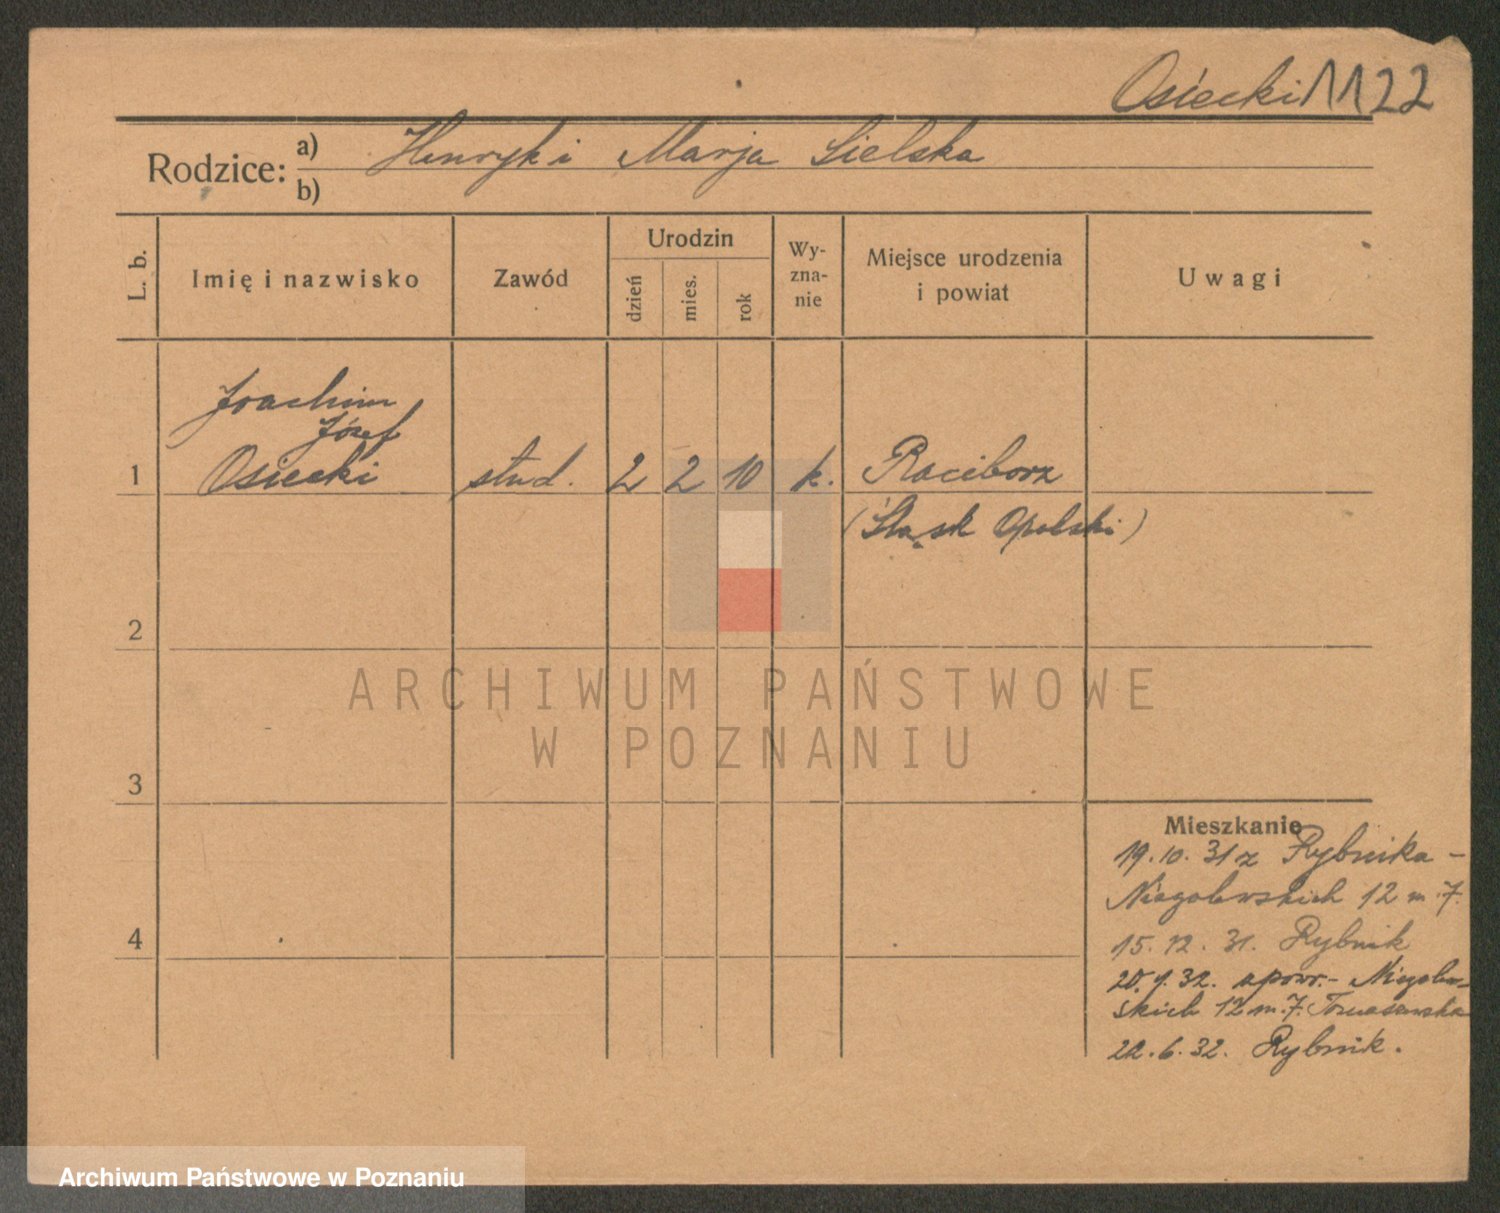 Osiecki 1122
Rodzice: a) Henryk i Marja Sielska
b)
L. b.
Imię i nazwisko
Zawód
Urodzin
dzień
mies.
rok
Wy-
zna-
nie
Miejsce urodzenia
i powiat
Uwagi
Joachim
Józef
1 Osiecki stud. 2 2 10 k. Racibórz
(Śląsk Opolski)
2
3
4
ARCHIWUM PAŃSTWOWE
W POZNANIU
Mieszkanie
19.10.31 z Rybnika –
Niegolewskich 12 m.7.
15.12.31. Rybnik
20.1.32. spowr.- Niegolew-
skich 12 m.7. Tomaszewska
22.6.32. Rybnik.
Archiwum Państwowe w Poznaniu